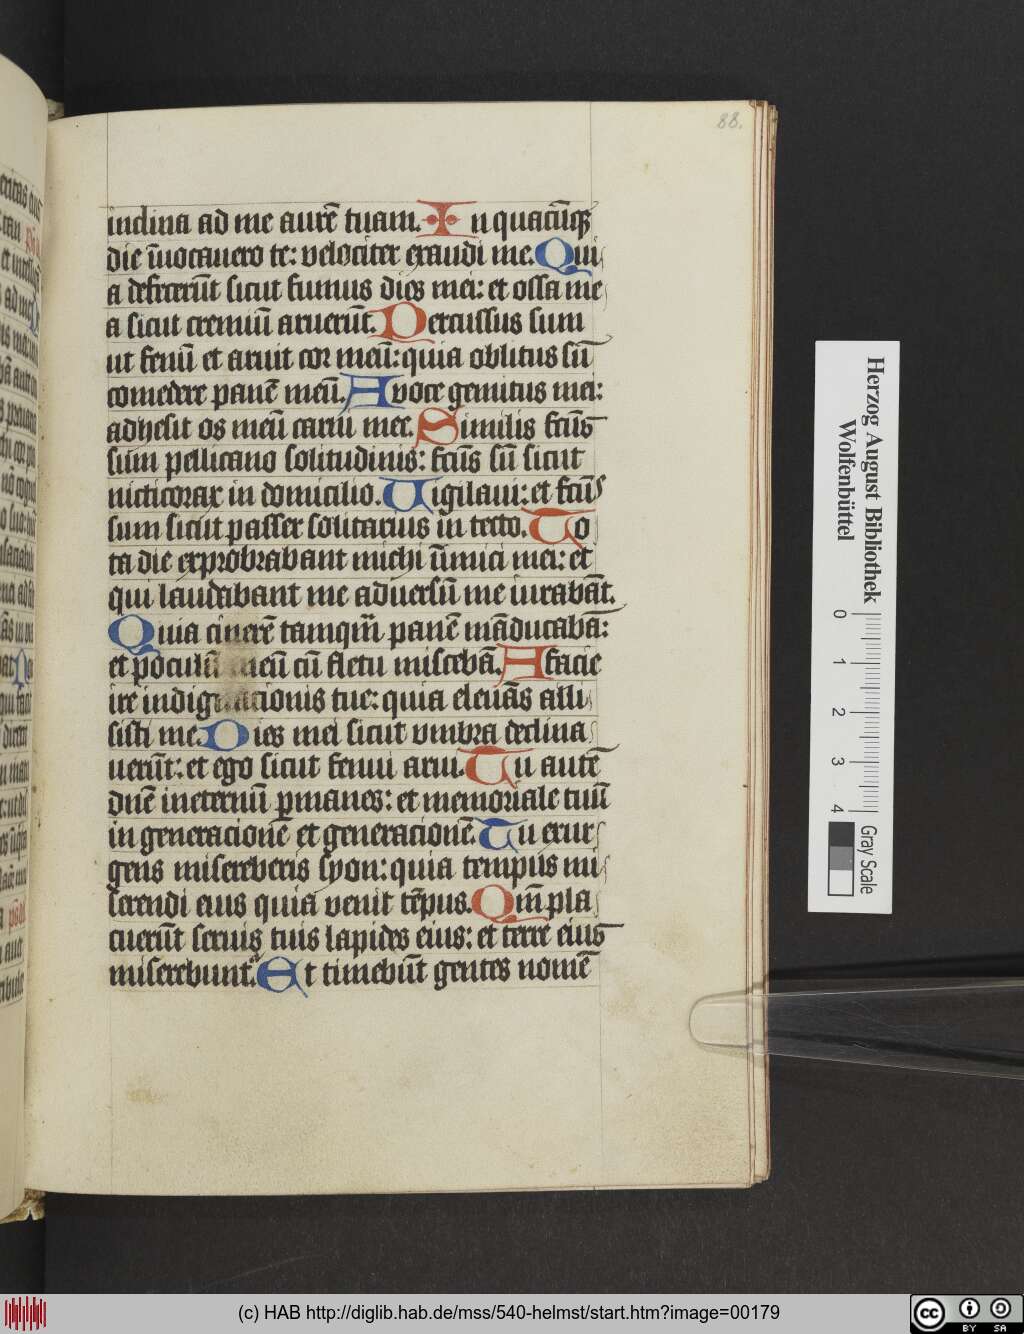 88.
inclina ad me aurē tuam. In quacūqꝫ
die īuocauero te: velociter exaudi me. Qui
a defecerūt sicut fumus dies mei: et ossa me
a sicut cremiū aruerūt. Percussus sum
ut fenū et aruit cor meū: quia oblitus sū
comedere panē meū. A voce gemitus mei:
adhesit os meū carni mee. Similis fcūs
sum pellicano solitudinis: fcūs sū sicut
nicticorax in domicilio. Vigilaui: et fcūs
sum sicut passer solitarius in tecto. To
ta die exprobrabant michi īimici mei: et
qui laudabant me aduersū me iurabāt.
Quia cinerē tamqm̄ panē māducabā:
et poculū meū cū fletu miscebā. A facie
ire indignacionis tue: quia eleuās alli
sisti me. Dies mei sicut vmbra declina
uerūt: et ego sicut fenum arui. Tu autē
dn̄e ineternū ꝑmanes: et memoriale tuū
in generacionē et generacionē. Tu exur
gens misereberis syon: quia tempus mi
serendi eius quia venit tēpus. Qm̄ pla
cuerūt seruis tuis lapides eius: et terre eius
miserebunt̄. Et timebūt gentes nomē
Herzog August Bibliothek
Wolfenbüttel
0 1 2 3 4
Gray Scale
(c) HAB http://diglib.hab.de/mss/540-helmst/start.htm?image=00179
cc BY SA